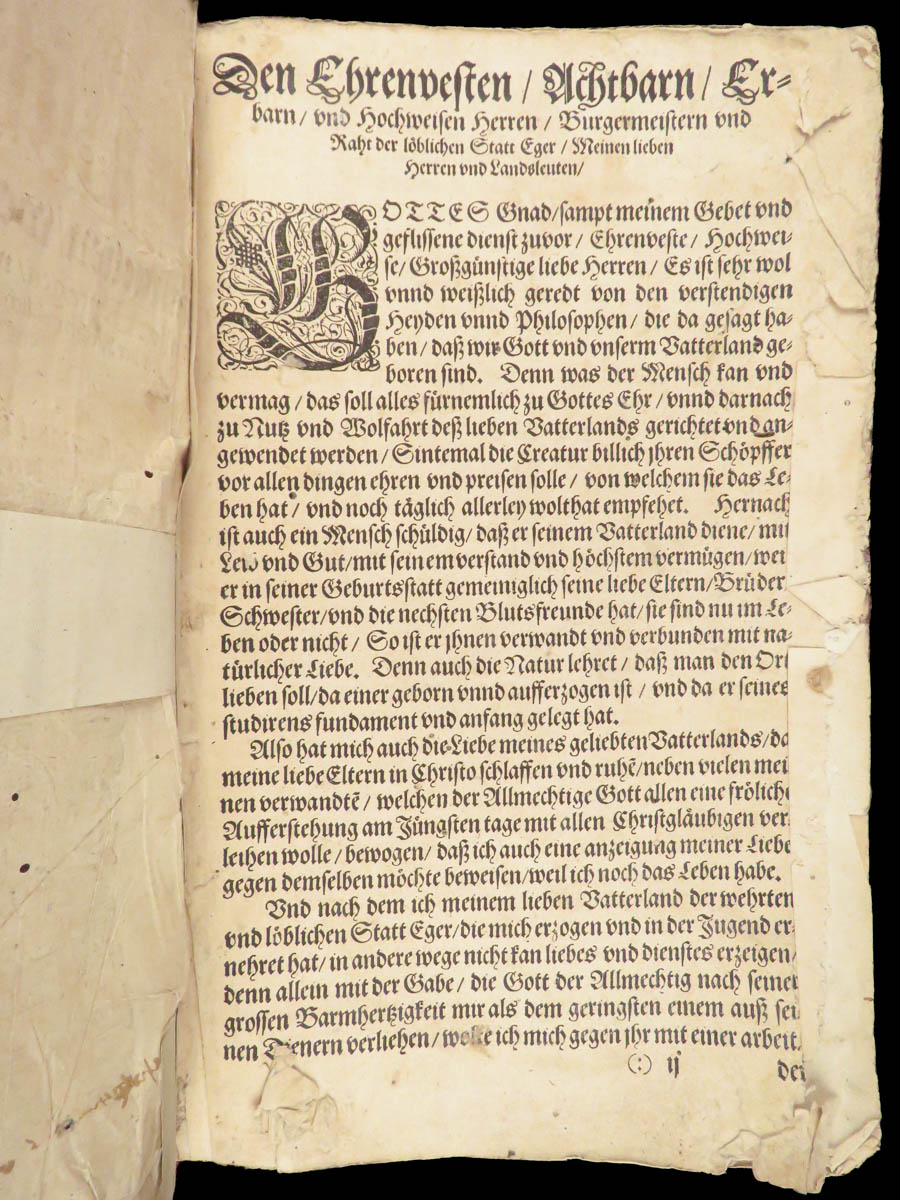 Den Ehrenvesten / Achtbarn / Er-
barn / vnd Hochweisen Herren / Burgermeistern vnd
Raht der löblichen Statt Eger / Meinen lieben
Herren vnd Landsleuten /
GOTTES Gnad / sampt meinem Gebet vnd
geflissene dienst zuvor / Ehrenveste / Hochwei-
se / Großgünstige liebe Herren / Es ist sehr wol
vnnd weißlich geredt von den verstendigen
Heyden vnnd Philosophen / die da gesagt ha-
ben / daß wir Gott vnd vnserm Vatterland ge-
boren sind. Denn was der Mensch kan vnd
vermag / das soll alles fürnemlich zu Gottes Ehr / vnnd darnach
zu Nutz vnd Wolfahrt deß lieben Vatterlands gerichtet vnd an-
gewendet werden / Sintemal die Creatur billich jhren Schöpffer
vor allen dingen ehren vnd preisen solle / von welchem sie das Le-
ben hat / vnd noch täglich allerley wolthat empfehet. Hernach
ist auch ein Mensch schüldig / daß er seinem Vatterland diene / mit
Leib vnd Gut / mit seinem verstand vnd höchstem vermügen / wei
er in seiner Geburtsstatt gemeiniglich seine liebe Eltern / Brüder
Schwester / vnd die nechsten Blutsfreunde hat / sie sind nu im Le-
ben oder nicht / So ist er jhnen verwandt vnd verbunden mit na-
türlicher Liebe. Denn auch die Natur lehret / daß man den Ort
lieben soll / da einer geborn vnnd aufferzogen ist / vnd da er seines
studirens fundament vnd anfang gelegt hat.
Also hat mich auch die Liebe meines geliebten Vatterlands / da
meine liebe Eltern in Christo schlaffen vnd ruhē / neben vielen mei
nen verwandtē / welchen der Allmechtige Gott allen eine fröliche
Aufferstehung am Jüngsten tage mit allen Christgläubigen ver-
leihen wolle / bewogen / daß ich auch eine anzeigung meiner Liebe
gegen demselben möchte beweisen / weil ich noch das Leben habe.
Vnd nach dem ich meinem lieben Vatterland der wehrten
vnd löblichen Statt Eger / die mich erzogen vnd in der Jugend er-
nehret hat / in andere wege nicht kan liebes vnd dienstes erzeigen /
denn allein mit der Gabe / die Gott der Allmechtig nach seiner
grossen Barmhertzigkeit mir als dem geringsten einem auß sei
nen Dienern verliehen / wolte ich mich gegen jhr mit einer arbeit.
(:) ij
der